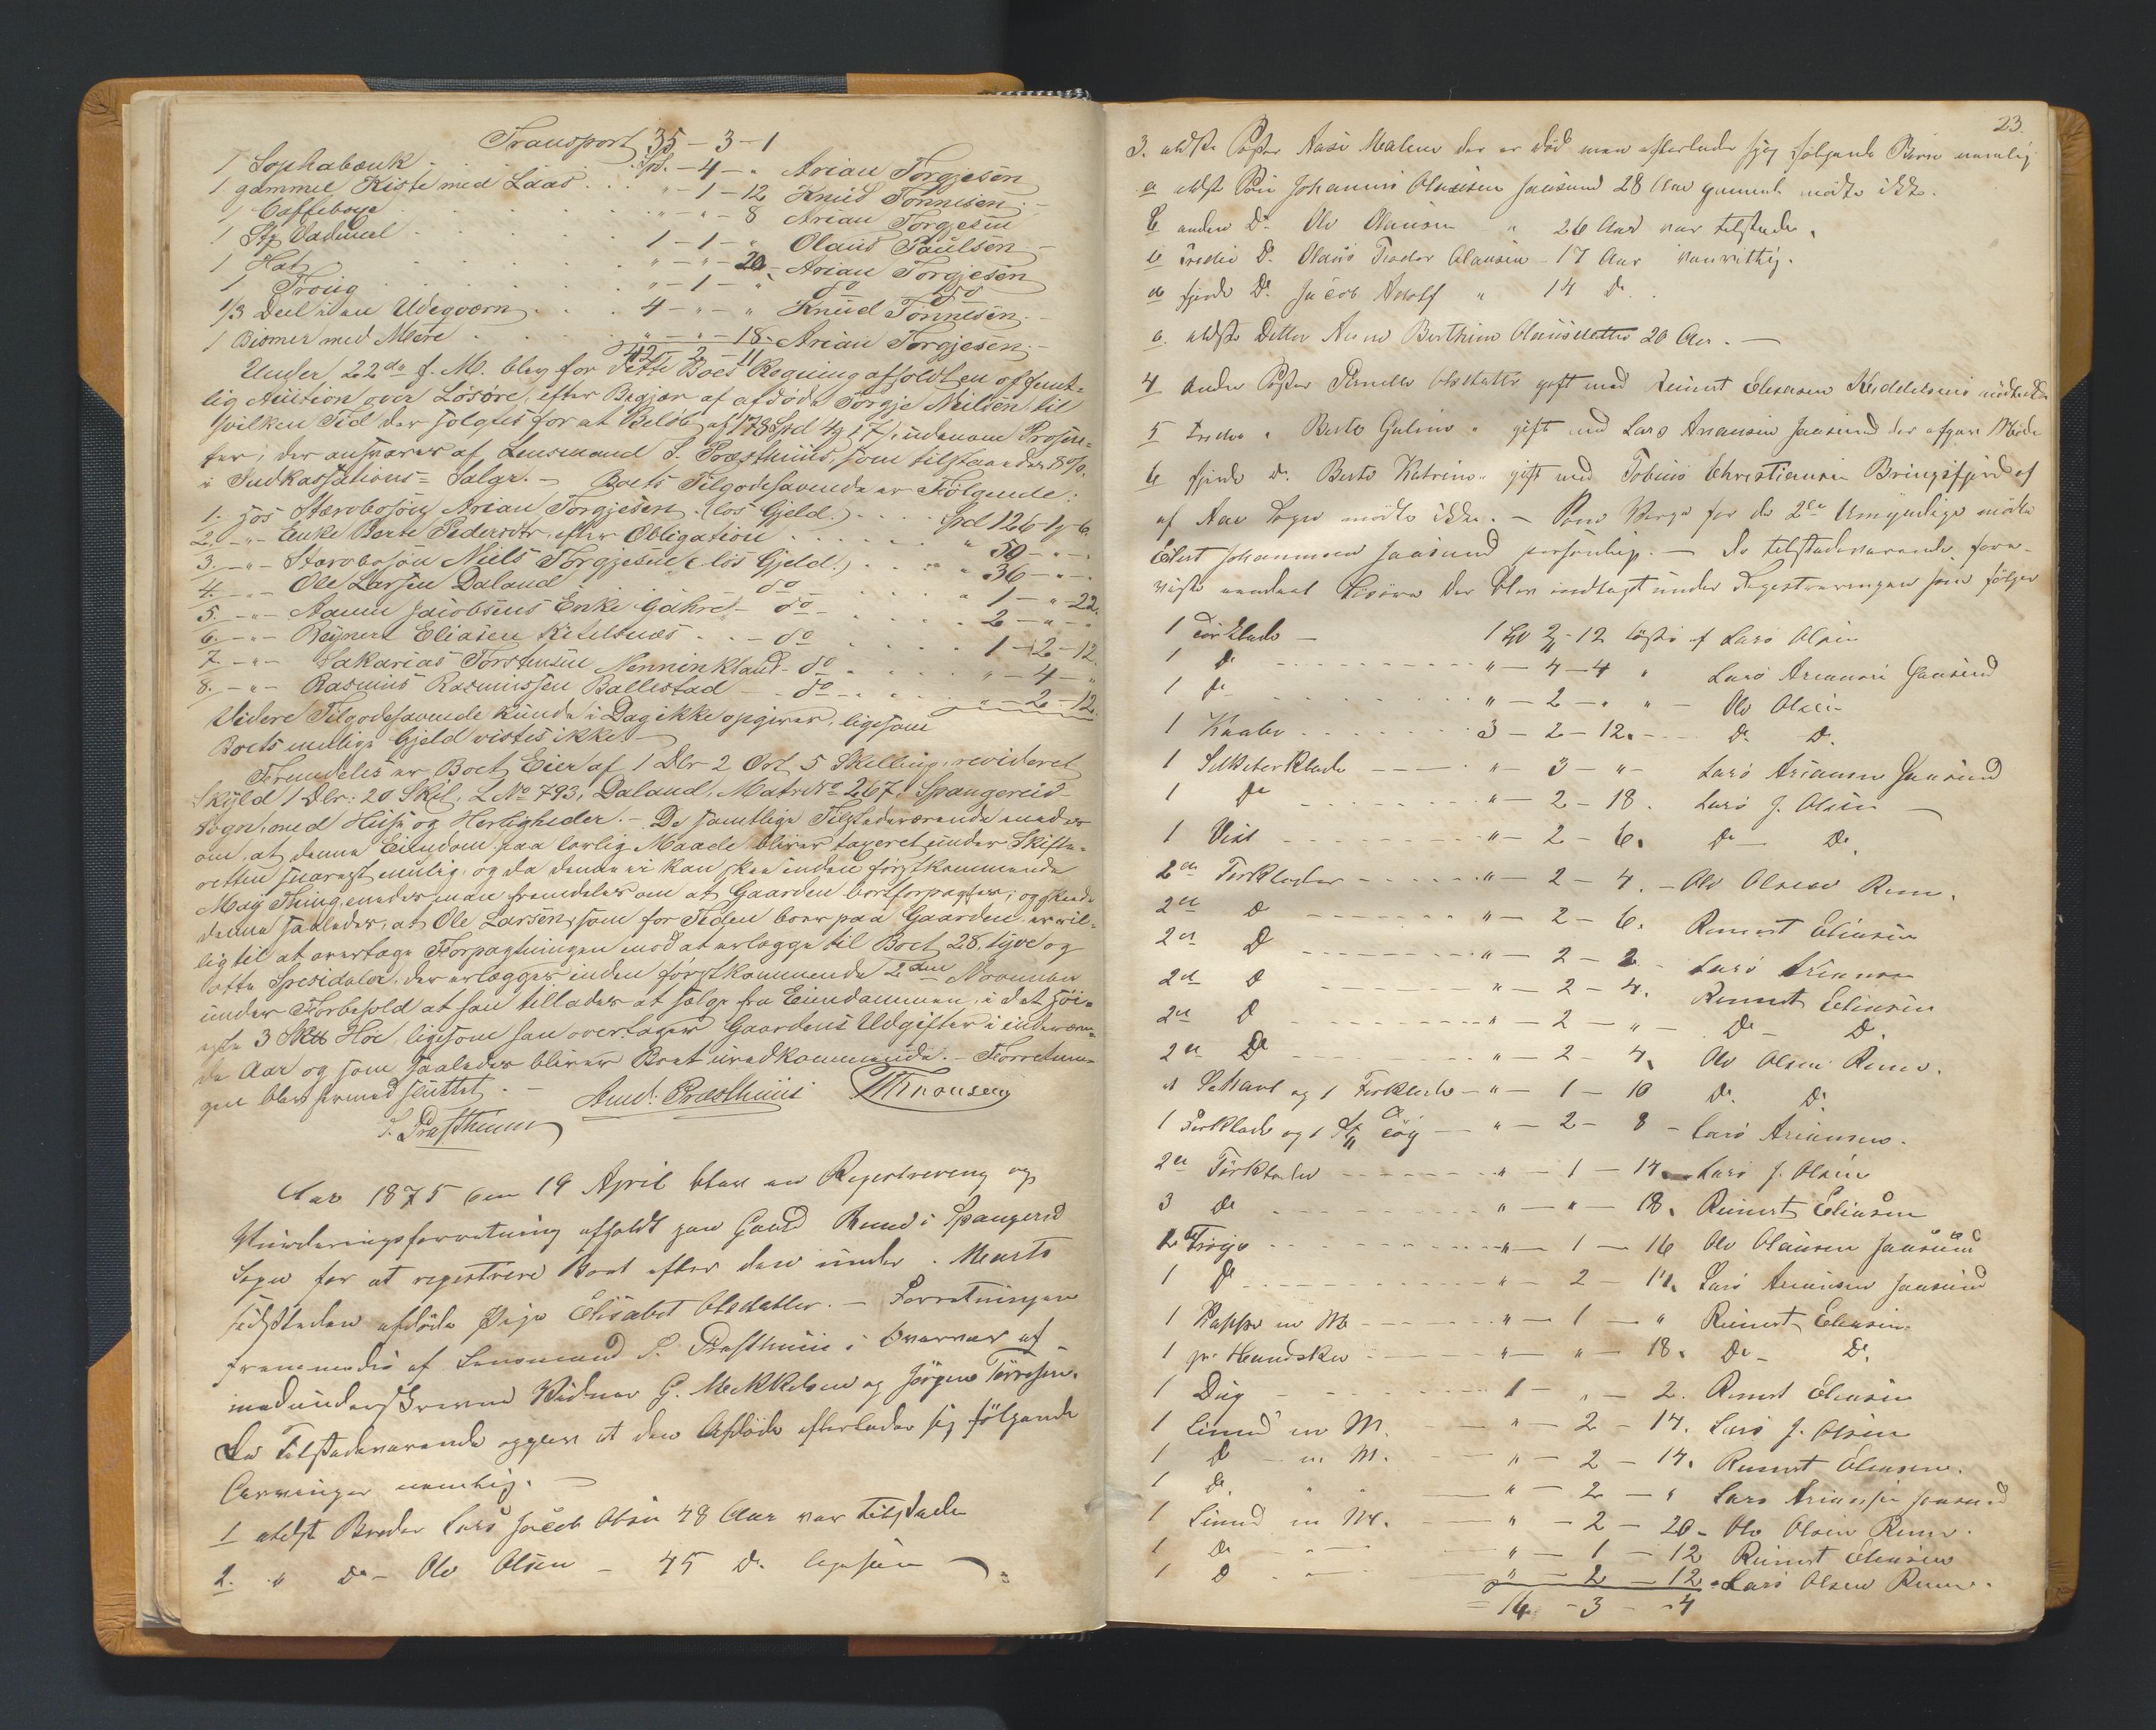 Transport 35 - 3 - 1
1 Sophabænk . . Spd. - 4 - " Arian Torgjesen
1 gammel Kiste med Laas . . " - 1 - 12 Knud Tönnesen
1 Caffeboge . . " - " - 8 Arian Torgjesen
1 Stk Vadmel . . 1 - 1 - " Olaus Paulsen
1 Hat . . " - " - 20 - Arian Torgjesen
1 Troug . . " - 1 - " do do
1/3 Deel i en Udegværn . . 4 - " - " Knud Tönnesen
1 Bismer med Mere . . " - " - 18 - Arian Torgjesen
42 - 2 - 11
Under 22de f. M. blev for dette Boes Regning afholdt en offent-
lig Auction over Lösöre, efter Begjær af afdöde Torgje Nielsen til
hvilken Tid der solgtes for at Belöb af 178 Spd 4 17 udenom Prosen-
ter, der ansvares af Lensmand S. Præsthuus, som tilstaaedes 8%
i Indkassations-Salgr. - Boets Tilgodehavende er Fölgende:
1. hos Stervbosön Arian Torgjesen (lös Gjeld.) . . Spd 126-1-6.
2. -"- Enke Berte Pedersdtr, efter Obligation . . " 50 - " - "
3. -"- Stervbosön Niels Torgjesen (lös Gjeld.) . . " 36 - " - "
4. -"- Ole Larsen Daland do . . " 1 - " - 22.
5. -"- Aanen Jacobsens Enke Gahre - do . . 2 - " - "
6. -"- Reynert Eliasen Ketelsnæs . . - do . . 1 - 2 - 12.
7. -"- Sakarias Torstensen Nenninksland - do . . " - 4 - "
8. -"- Rasmus Rasmussen Ballestad - do . . " - 2 - 12.
Videre Tilgodehavende kunde i Dag ikke opgives, ligesom
Boets mulige Gjeld vistes ikke. -
Fremdeles er Boet Eier af 1 Dlr 2 Ort 5 Skilling, revideret
Skyld 1 Dlr: 20 Skil, L No 793, Daland, Matr No 267, Spangereid
Sogn, med Huse og Herligheder. - De samtlige Tilstedeværende enedes
om, at denne Eiendom paa lovlig Maade bliver taxeret under Skifte-
retten snarest mulig, og da denne ei kan skee inden förstkommende
May Thing, enedes man fremdeles om at Gaarden bortforpagtes; og skeede
denne saaledes, at Ole Larsen, som for Tiden boer paa Gaarden er vil-
lig til at overtage Forpagtningen mod at erlægge til Boet 28, tyve og
otte Spesidaler, der erlægges inden förstkommende 2den November
under Forbehold at han tillades at sælge fra Eiendommen, i det höi-
este 3 Skll Höe, ligesom han overtager Gaardens Udgifter i indeværen-
de Aar og som saaledes bliver Boet uvedkommende. - Forretnin-
gen blev hermed sluttet. -
S. Præsthuus Amd: Præsthuus T Knousen
Aar 1875 den 19 April blev en Registrering og
Vurderingsforretning afholdt paa Gaard Rem i Spangereid
Sogn for at registrere Boet efter den under . Marts
sidstleden afdöde Pige Elisabet Olsdatter. - Forretningen
fremmedes af Lensmand S. Præsthuus i Overvær af
medunderskrevne Vidner G. Mekkelsen og Jörgen Törresen.
De Tilstedeværende opgav at den Afdöde efterlader sig fölgende
Arvinger nemlig. -
1 eldst Broder Lars Jacob Olsen 48 Aar var tilstede
2. " Do - Ole Olsen - 45 Do ligesaa
23.
3. eldste Söster Aase Malene der er död men efterlader sig fölgende Börn nemlig
a eldste Sön Johannes Olausen Jaasund 28 Aar gammel mödte ikke.
b anden Do Ole Olausen " 26 Aar var tilstede.
c tredie Do Olaus Teodor Olausen - 17 Aar
d fjerde Do Jacob Adolf " 14 do.
e. eldste Datter Anne Berthine Olausdatter 20 Aar. -
4 anden Söster Pernelle Olsdatter gift med Reinert Eliasen
5 tredie " Berte Guline " gift med Lars Ariansen Jaasund der afgav Möde
6 fjerde Do Berte Katrine " gift med Tobias Christiansen Bringsfjord af
af Aae Sogn mödte ikke. - Som Verge for de 2de Umyndige mödte
Eilert Johannesen Jaasund personlig. - De tilstedeværende fore-
viste eendeel Lösöre der blev indtagt under Registreringen som fölger
1 Törklæde - 1 Spd 2 - 12 löste af Lars Olsen
1 do - " - 4 - 4 " Lars Ariansen Jaasund
1 do - " - 2 - " " - Ole Olsen
1 Kaabe . . 3 - 2 - 12. - do Do.
1 Silketørklæde - " - 3 - " - Lars Ariansen Jaasund
1 do - " - 2 - 18. Lars J. Olsen
1 Vest - " - 2 - 6. Do - Do.
2de Törklæder - " - 2 - 4. - Ole Olsen Rem.
2de D - " - 2 - 6. Reinert Eliasen
2de D - " - 2 - 2 - Lars Ariansen
2de D - " - 2 - 4. Reinert Eliasen
2de D - " - 2 - " - Do - D.
2de Do - " - 2 - 4. Ole Olsen Rem.
et Schavl og 1 Forklæde - " - 1 - 10 Do. Do.
1 Forklæde og 1 St Töy - " - 2 - 8 - Lars Ariansen.
2de Törklæder - " - 1 - 14 - Lars J. Olsen
3 do - " - " - 18. Reinert Eliasen
2de Tröye - " - 1 - 16 Ole Olausen Jaasund
1 D - " - 2 - 14. Lars Ariansen Jaasund
1 Kappe m M - " - 1 - " Reinert Eliasen
1 pr. Handsker - " - " - 18. Do - Do.
1 Dug - 1 - " - 2. Reinert Eliasen
1 Linned m M. - " - 2 - 14. Lars J. Olsen
1 D - m M. - " - 2 - 14. Reinert Eliasen.
1 Do. " " - " - 2 - " Lars Ariansen Jaasund
1 Linned m M. - " - 2 - 20 - Ole Olsen Rem.
1 Do - " - " - 1 - 12 Reinert Eliasen
1 D - " - " - 2 - 12 - Lars Olsen Rem.
= 14 - 3 - 4